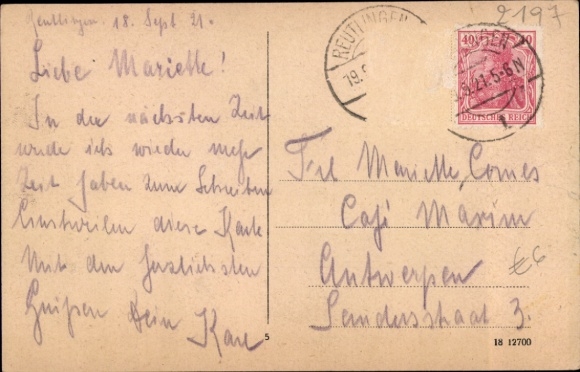 Reutlingen. 18. Sept 21.
Liebe Marielle!
In der nächsten Zeit
werde ich wieder mehr
Zeit haben zum Schreiben
Einstweilen diese Karte
Mit den herzlichsten
Grüßen Dein Karl
5
2197
REUTLINGEN
19.
40 40
DEUTSCHES REICH
GEN
.9.21.5-6N
1.
Frl Marielle, Comes
Café Maxim
Antwerpen
€6
Sendersstraat 3.
18 12700